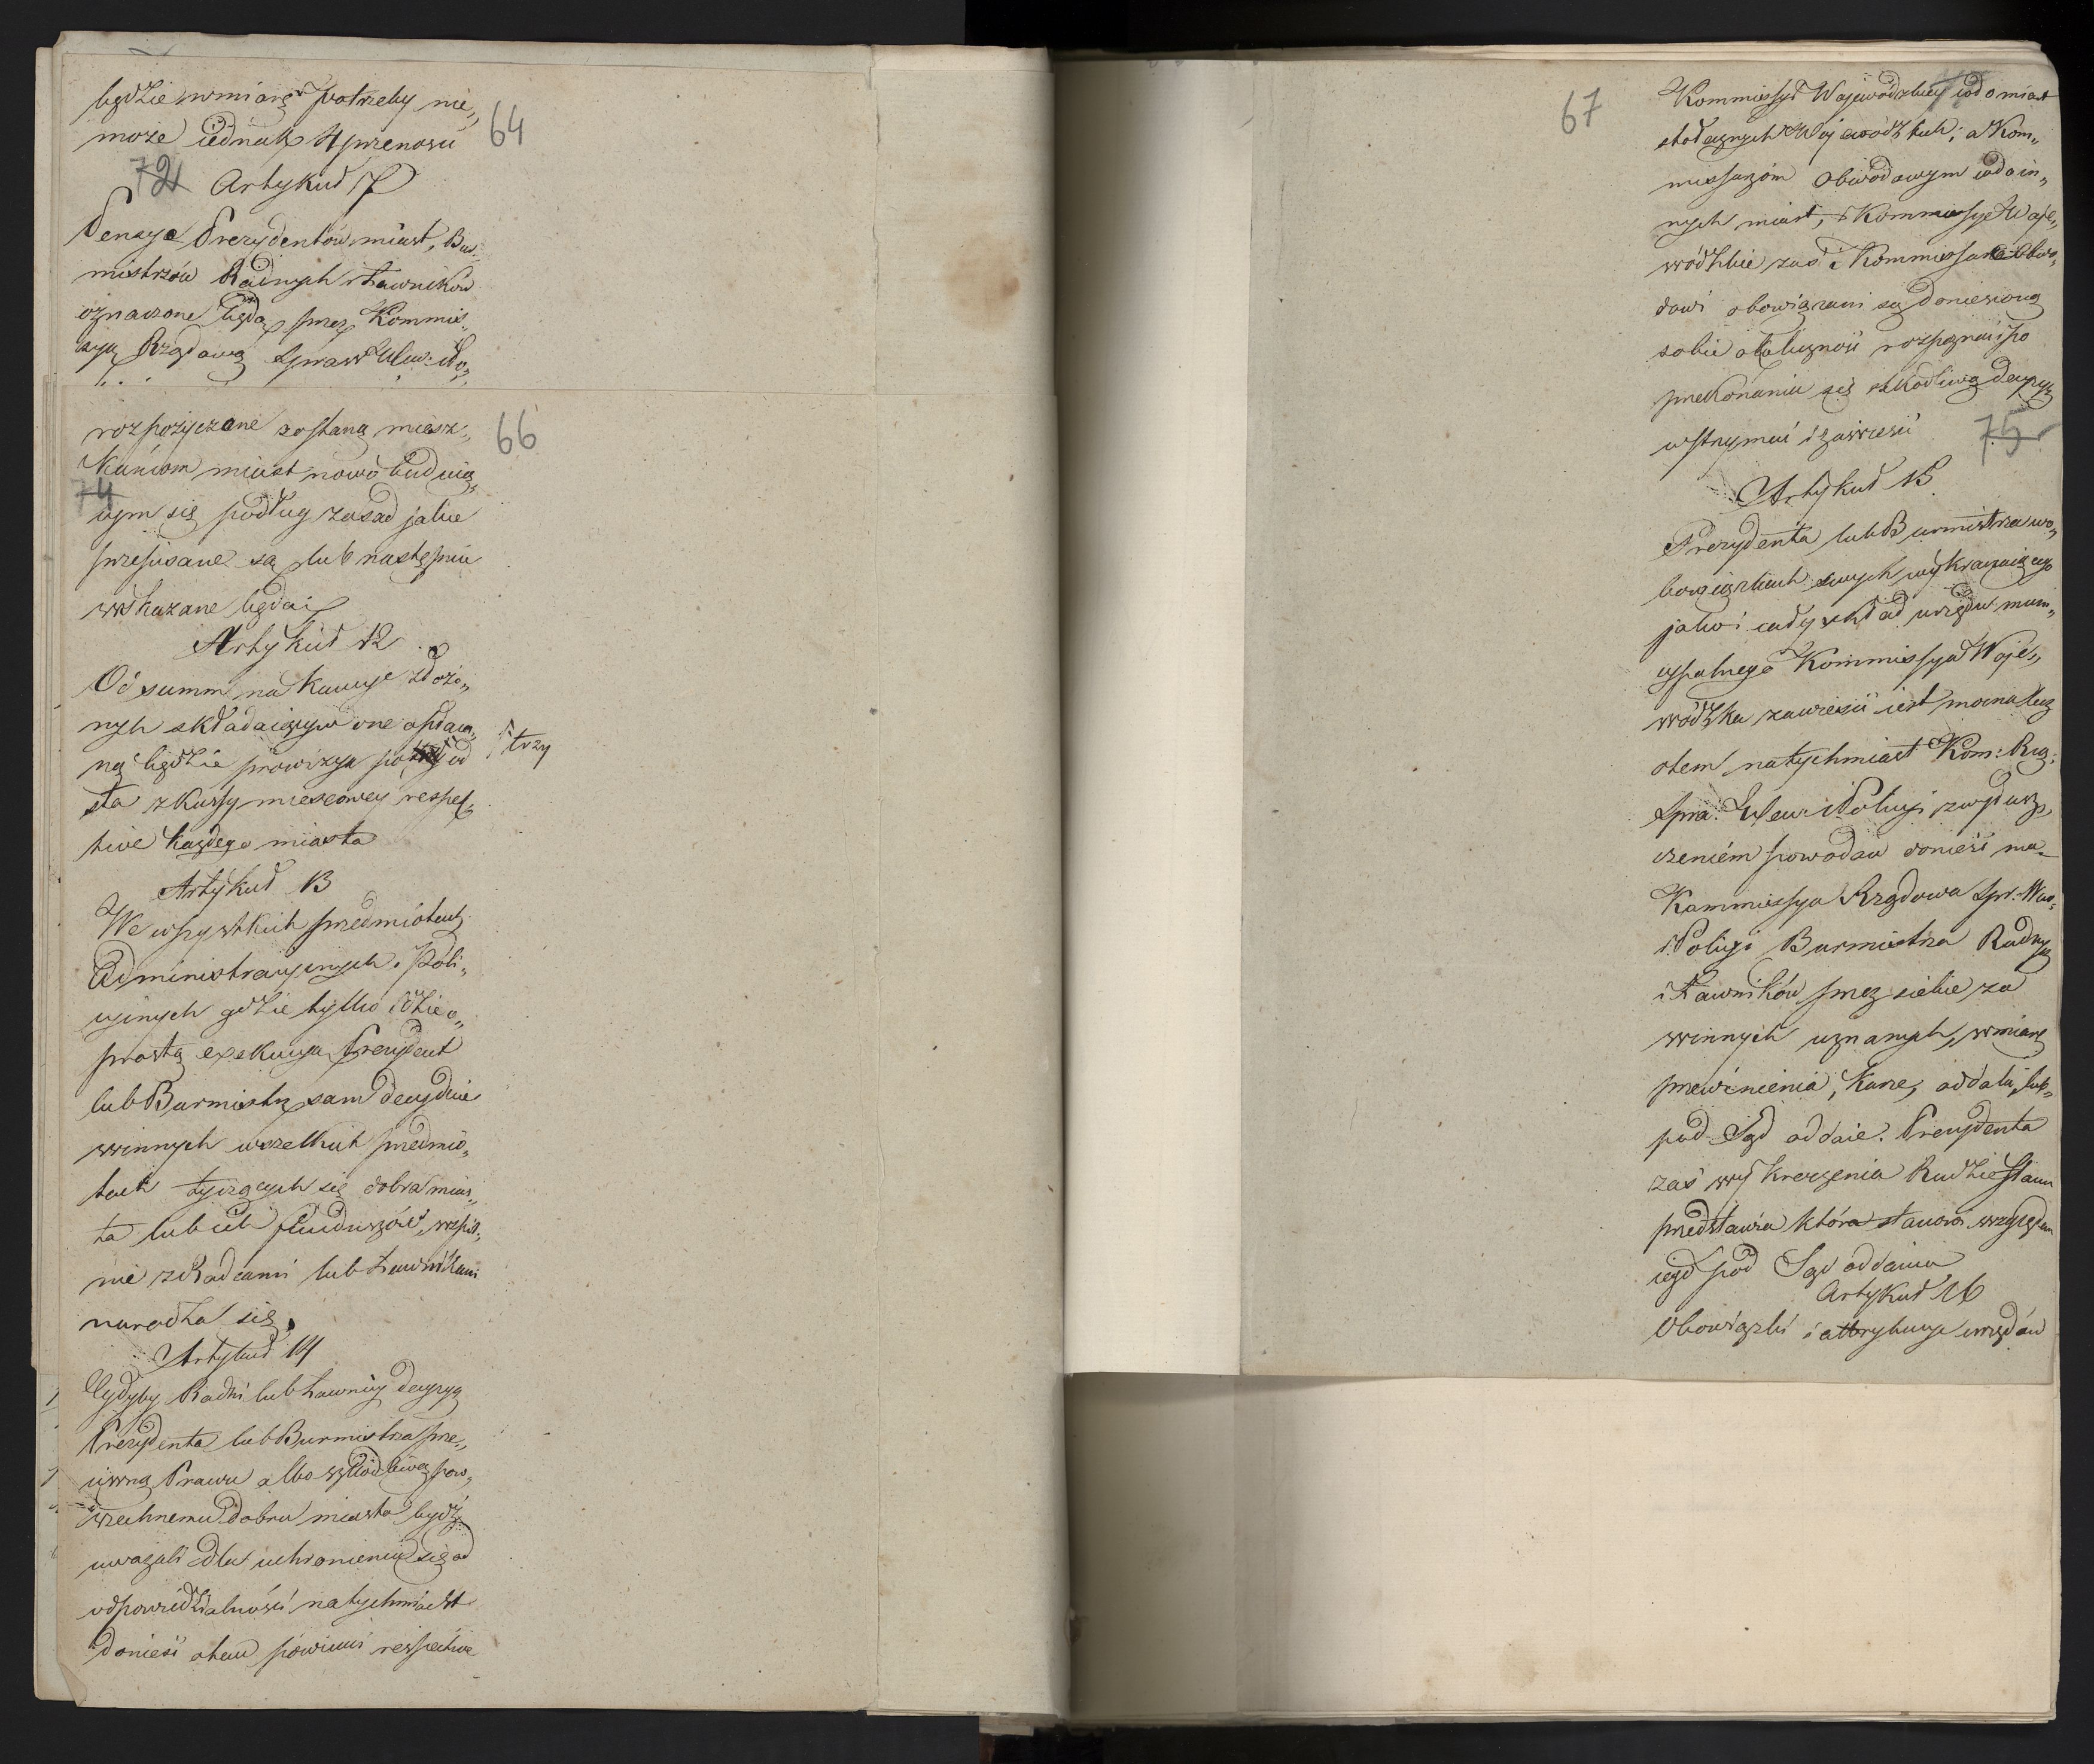 będzie w miarę potrzeby nie„
może iednak 4 przenosić
64
72
Artykuł 7
Pensye Prezydentów miast, Bur„
mistrzów Radnych i Ławników
oznaczone będą przez Kommis„
syą Rządową Spraw Wew: i Po„
rozpożyczone zostaną miesz„
66
kańcom miast nowo buduią„
74
cym się podług zasad jakie
przepisane są lub następnie
wskazane będą
Artykuł 12
Od summ na kaucye złożo„
nych składaiącym one opłaca„
ną będzie prowizya po trzy od
trzy
sta z kassy miescowey respec„
tive każdego miasta
Artykuł 13
We wszystkich przedmiotach
Administracyinych i Poli„
cyinych gdzie tylko idzie o„
prostą exekucyą Prezydent
lub Burmistrz sam decyduie
w innych wszelkich przedmio„
tach tyczących się dobra mias„
ta lub ich funduszów, wspól„
nie z Radcami lub Ławnikami
naradza się.
Artykuł 14
Gdyby Radni lub Ławnicy decyzyą
Prezydenta lub Burmistrza prze„
ciwną Prawu albo szkodliwą pow„
szechnemu dobru miasta bydź
uważali dla uchronienia się od
odpowiedzialności natychmiast
donieść o tem powinni respective
67
Kommissyi Woiewódzkiey co do miast
stołecznych Wojewódzkich; a Kom„
missarzom Obwodowym co do in„
nych miast, Kommissye Woje„
wódzkie zaś i Kommissarze Obwo„
dowi obowiązani są doniesioną
sobie okoliczność rozpoznać i po
przekonaniu się szkodliwą decyzyą
wstrzymać i zawiesić
75
Artykuł 15
Prezydenta lub Burmistrza w o„
bowiązkach swych wykraczaiącego
jako i cały skład urzędu muni„
cypalnego Kommissya Woje„
wódzka zawiesić iest mocna lecz
o tem natychmiast Kom: Rzą:
Spra: Wew: i Policyi z wyłusz„
czeniem powodów donieść ma_
Kommissya Rządowa Spr: Wew:
i Policyi Burmistrza Radnych
i Ławników przez siebie za
winnych uznanych, w miarę
przewinienia, karze, oddala, lub„
pod Sąd oddaie. Prezydenta
zaś wykroczenia Radzie Stanu
przedstawia która stanowi względem
iego pod Sąd oddania
Artykuł 16
Obowiązki i attrybucye urzędów